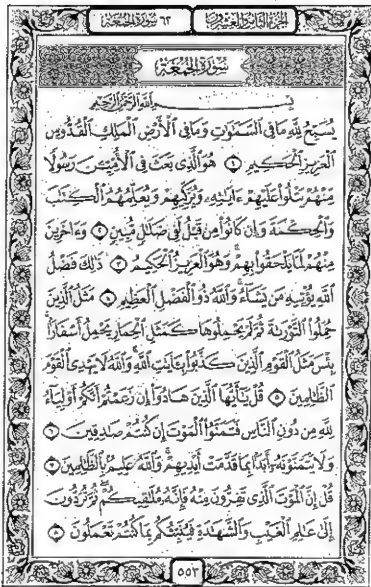 الجزء الثامن والعشرون
٦٢ سورة الجمعة
سورة الجمعة
بسم الله الرحمن الرحيم
يُسَبِّحُ لِلَّهِ مَا فِي السَّمَٰوَٰتِ وَمَا فِي الْأَرْضِ الْمَلِكِ الْقُدُّوسِ
الْعَزِيزِ الْحَكِيمِ ١ هُوَ الَّذِي بَعَثَ فِي الْأُمِّيِّينَ رَسُولًا
مِنْهُمْ يَتْلُوا عَلَيْهِمْ ءَايَٰتِهِ وَيُزَكِّيهِمْ وَيُعَلِّمُهُمُ الْكِتَٰبَ
وَالْحِكْمَةَ وَإِن كَانُوا مِن قَبْلُ لَفِي ضَلَٰلٍ مُّبِينٍ ٢ وَءَاخَرِينَ
مِنْهُمْ لَمَّا يَلْحَقُوا بِهِمْ وَهُوَ الْعَزِيزُ الْحَكِيمُ ٣ ذَٰلِكَ فَضْلُ
اللَّهِ يُؤْتِيهِ مَن يَشَاءُ وَاللَّهُ ذُو الْفَضْلِ الْعَظِيمِ ٤ مَثَلُ الَّذِينَ
حُمِّلُوا التَّوْرَىٰةَ ثُمَّ لَمْ يَحْمِلُوهَا كَمَثَلِ الْحِمَارِ يَحْمِلُ أَسْفَارًا
بِئْسَ مَثَلُ الْقَوْمِ الَّذِينَ كَذَّبُوا بِـَٔايَٰتِ اللَّهِ وَاللَّهُ لَا يَهْدِي الْقَوْمَ
الظَّٰلِمِينَ ٥ قُلْ يَٰأَيُّهَا الَّذِينَ هَادُوا إِن زَعَمْتُمْ أَنَّكُمْ أَوْلِيَاءُ
لِلَّهِ مِن دُونِ النَّاسِ فَتَمَنَّوُا الْمَوْتَ إِن كُنتُمْ صَٰدِقِينَ ٦
وَلَا يَتَمَنَّوْنَهُ أَبَدًا بِمَا قَدَّمَتْ أَيْدِيهِمْ وَاللَّهُ عَلِيمٌ بِالظَّٰلِمِينَ ٧
قُلْ إِنَّ الْمَوْتَ الَّذِي تَفِرُّونَ مِنْهُ فَإِنَّهُ مُلَٰقِيكُمْ ثُمَّ تُرَدُّونَ
إِلَىٰ عَٰلِمِ الْغَيْبِ وَالشَّهَٰدَةِ فَيُنَبِّئُكُم بِمَا كُنتُمْ تَعْمَلُونَ ٨
٥٥٣